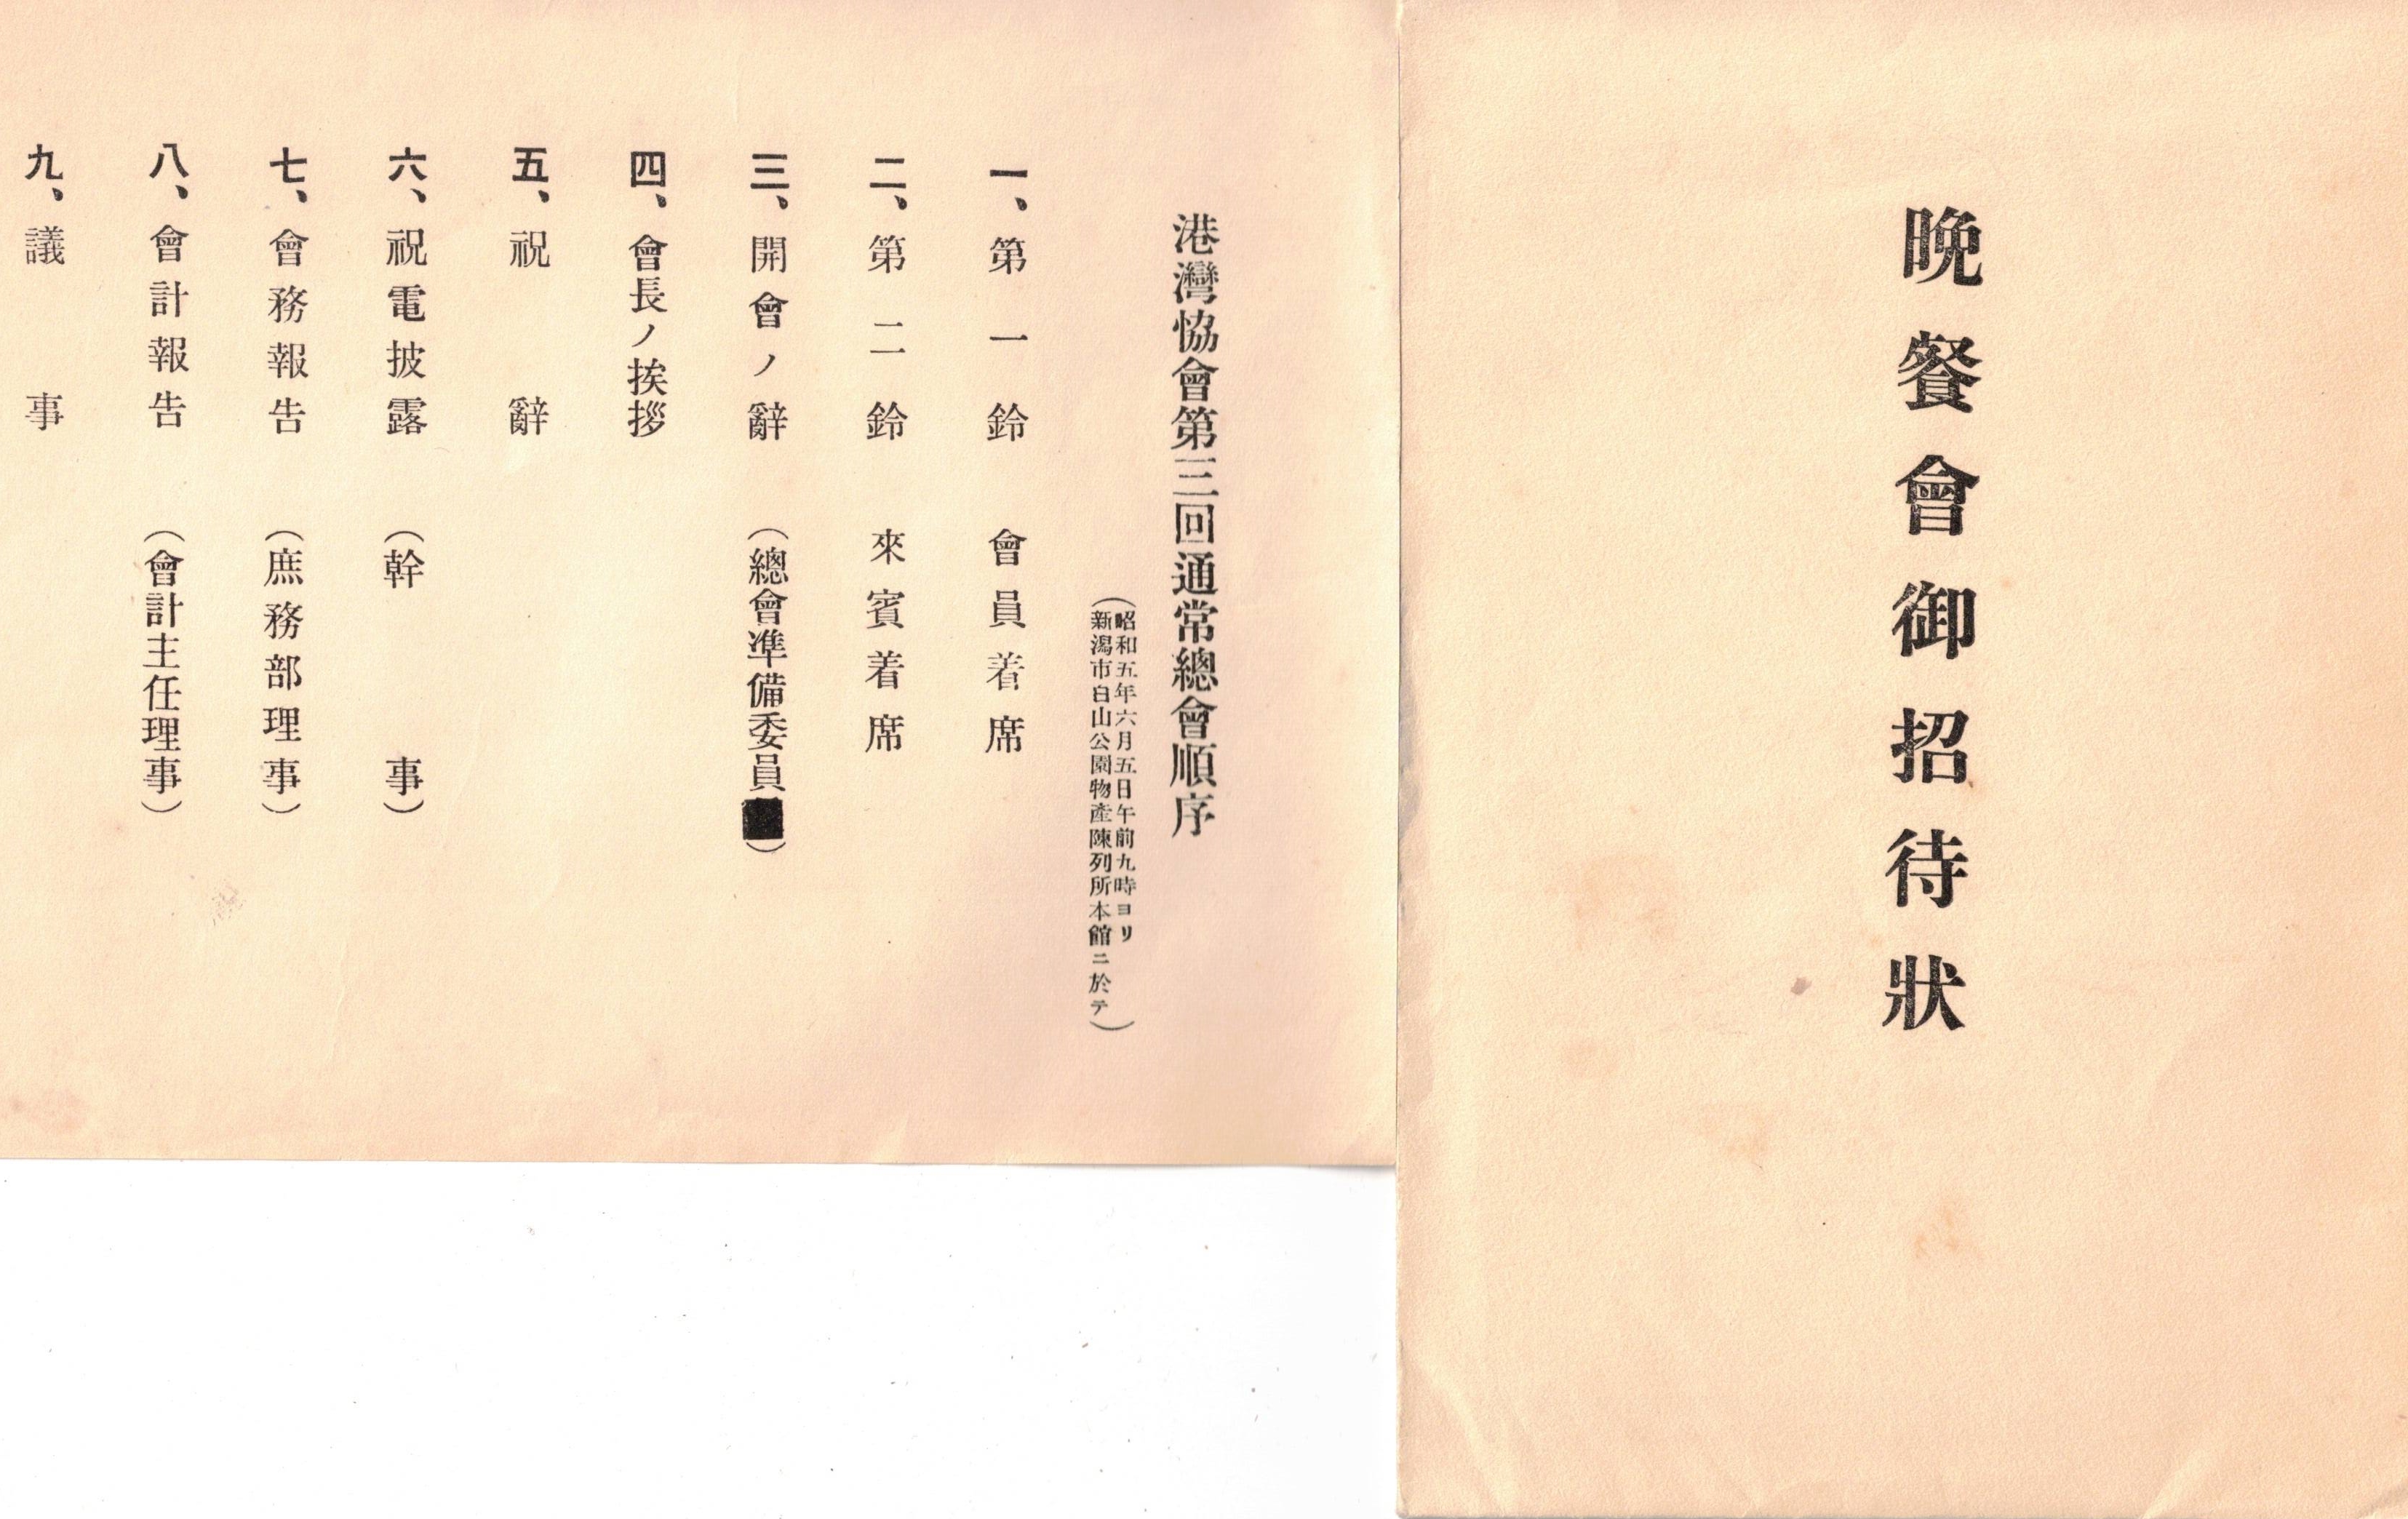 晩餐會御招待狀
港灣恊會第三回通常總會順序
（昭和五年六月五日午前九時ヨリ
新潟市白山公園物產陳列所本館ニ於テ）
一、第一鈴　會員着席
二、第二鈴　來賓着席
三、開會ノ辭　（總會準備委員■）
四、會長ノ挨拶
五、祝辭
六、祝電披露　（幹事）
七、會務報告　（庶務部理事）
八、會計報告　（會計主任理事）
九、議事